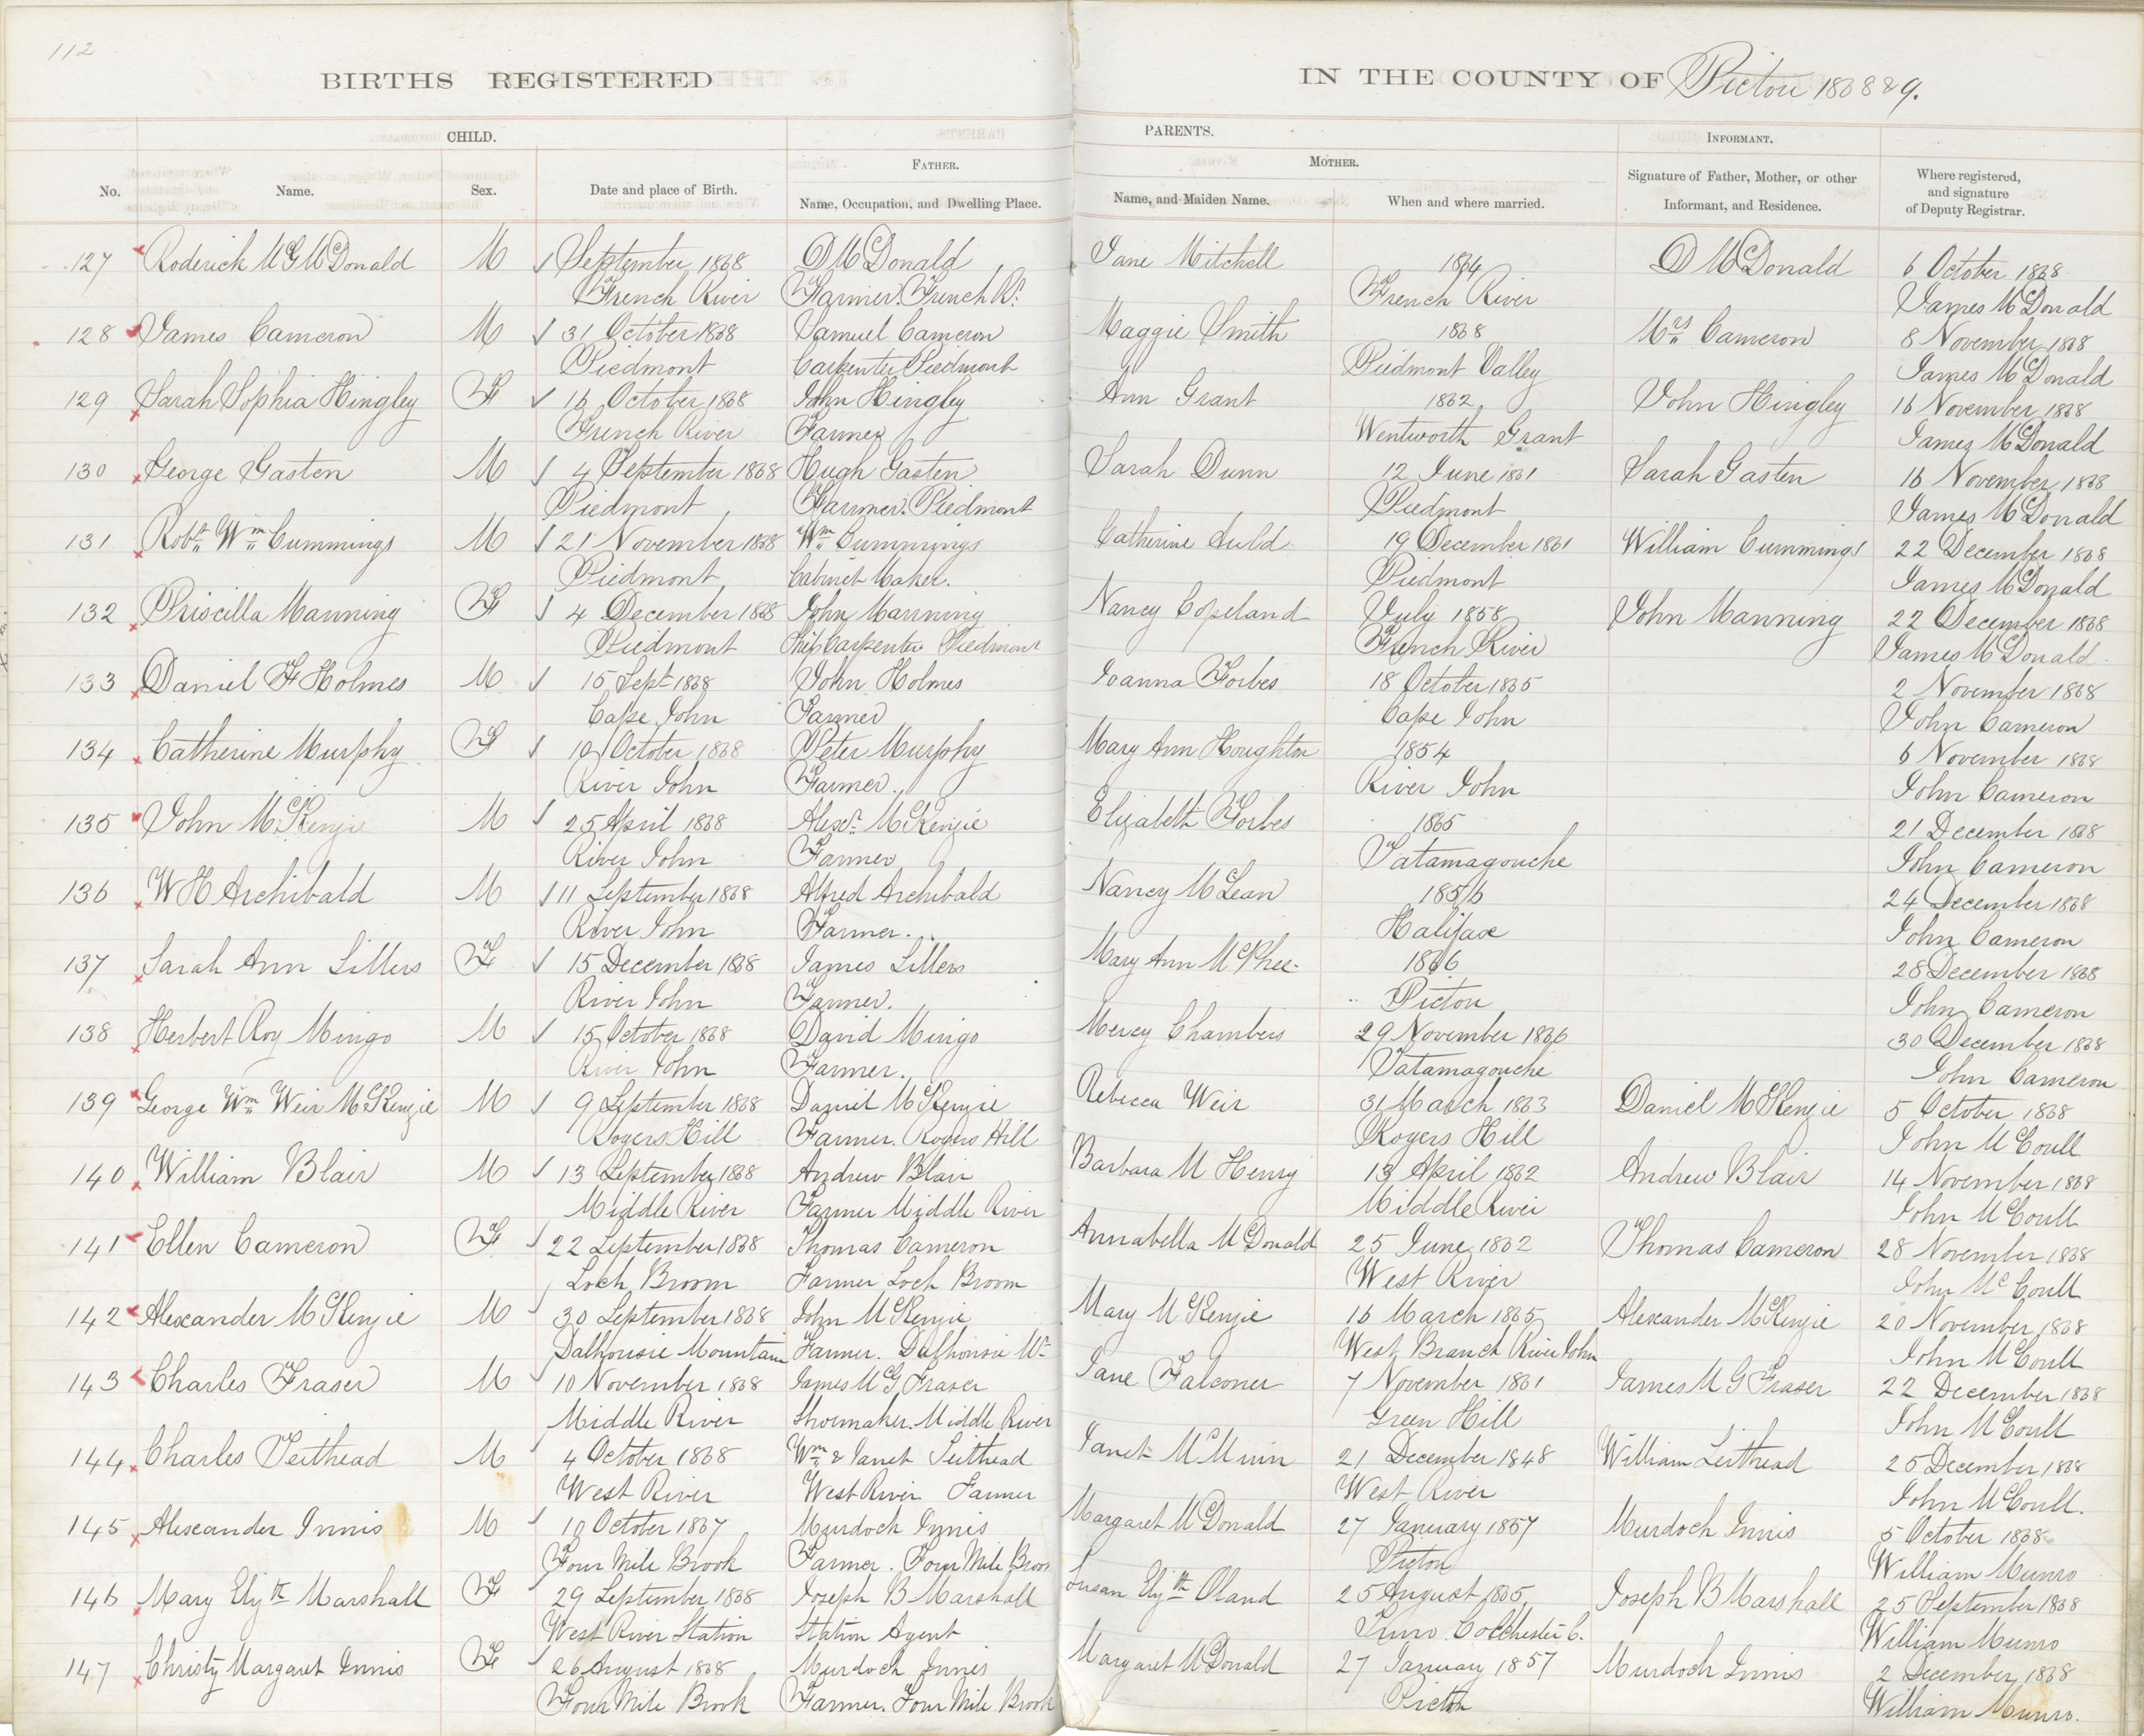 112
BIRTHS REGISTERED
IN THE COUNTY OF Pictou 1868 & 9.
CHILD.
PARENTS.
INFORMANT.
No.
Name.
Sex.
Date and place of Birth.
FATHER.
Name, Occupation, and Dwelling Place.
MOTHER.
Name, and Maiden Name.
When and where married.
Signature of Father, Mother, or other
Informant, and Residence.
Where registered,
and signature
of Deputy Registrar.
127 Roderick McG McDonald M September 1868 D McDonald Jane Mitchell 1864 D McDonald 6 October 1868
French River Farmer. French Rr. French River James McDonald
128 James Cameron M 31 October 1868 Samuel Cameron Maggie Smith 1868 Mrs Cameron 8 November 1868
Piedmont Carpenter Piedmont Piedmont Valley James McDonald
129 Sarah Sophia Hingley F 16 October 1868 John Hingley Ann Grant 1862 John Hingley 16 November 1868
French River Farmer Wentworth Grant James McDonald
130 George Gasten M 4 September 1868 Hugh Gasten Sarah Dunn 12 June 1861 Sarah Gasten 16 November 1868
Piedmont Farmer. Piedmont Piedmont James McDonald
131 Robt Wm Cummings M 21 November 1868 Wm Cummings Catherine Auld 19 December 1861 William Cummings 22 December 1868
Piedmont Cabinet Maker. Piedmont James McDonald
132 Priscilla Manning F 4 December 1868 John Manning Nancy Copeland July 1858 John Manning 22 December 1868
Piedmont Ship Carpenter Piedmont French River James McDonald
133 Daniel F Holmes M 15 Sept 1868 John Holmes Joanna Forbes 18 October 1865 2 November 1868
Cape John Farmer Cape John John Cameron
134 Catherine Murphy F 10 October 1868 Peter Murphy Mary Ann Houghton 1854 6 November 1868
River John Farmer. River John John Cameron
135 John McKenzie M 25 April 1868 Alexr. McKenzie Elizabeth Forbes 1865 21 December 1868
River John Farmer Tatamagouche John Cameron
136 W H Archibald M 11 September 1868 Alfred Archibald Nancy McLean 1856 24 December 1868
River John Farmer. Halifax John Cameron
137 Sarah Ann Sillers F 15 December 1868 James Sillers Mary Ann McPhee 1866 28 December 1868
River John Farmer. Pictou John Cameron
138 Herbert Roy Mingo M 15 October 1868 David Mingo Mercy Chambers 29 November 1866 30 December 1868
River John Farmer. Tatamagouche John Cameron
139 George Wm Weir McKenzie M 9 September 1868 Daniel McKenzie Rebecca Weir 31 March 1863 Daniel McKenzie 5 October 1868
Rogers Hill Farmer. Rogers Hill Rogers Hill John McCoull
140 William Blair M 13 September 1868 Andrew Blair Barbara McHenry 13 April 1862 Andrew Blair 14 November 1868
Middle River Farmer Middle River Middle River John McCoull
141 Ellen Cameron F 22 September 1868 Thomas Cameron Annabella McDonald 25 June 1862 Thomas Cameron 28 November 1868
Loch Broom Farmer Loch Broom West River John McCoull
142 Alexander McKenzie M 30 September 1868 John McKenzie Mary McKenzie 16 March 1865 Alexander McKenzie 20 November 1868
Dalhousie Mountain Farmer. Dalhousie Mt West Branch River John John McCoull
143 Charles Fraser M 10 November 1868 James McG Fraser Jane Falconer 7 November 1861 James McG Fraser 22 December 1868
Middle River Shoemaker. Middle River Green Hill John McCoull
144 Charles Leithead M 4 October 1868 Wm & Janet Leithead Janet 21 December 1848 William Leithead 25 December 1868
West River West River Farmer West River John McCoull.
145 Alexander Innis M 10 October 1867 Murdoch Innis Margaret McDonald 27 January 1857 Murdoch Innis 5 October 1868
Four Mile Brook Farmer. Four Mile Brook Pictou William Munro
146 Mary Elizth Marshall F 29 September 1868 Joseph B Marshall Susan Elizth Oland 25 August 1865 Joseph B Marshall 25 September 1868
West River Station Station Agent Truro Colchester C. William Munro
147 Christy Margaret Innis F 26 August 1868 Murdoch Innis Margaret McDonald 27 January 1857 Murdoch Innis 2 December 1868
Four Mile Brook Farmer. Four Mile Brook Pictou William Munro.